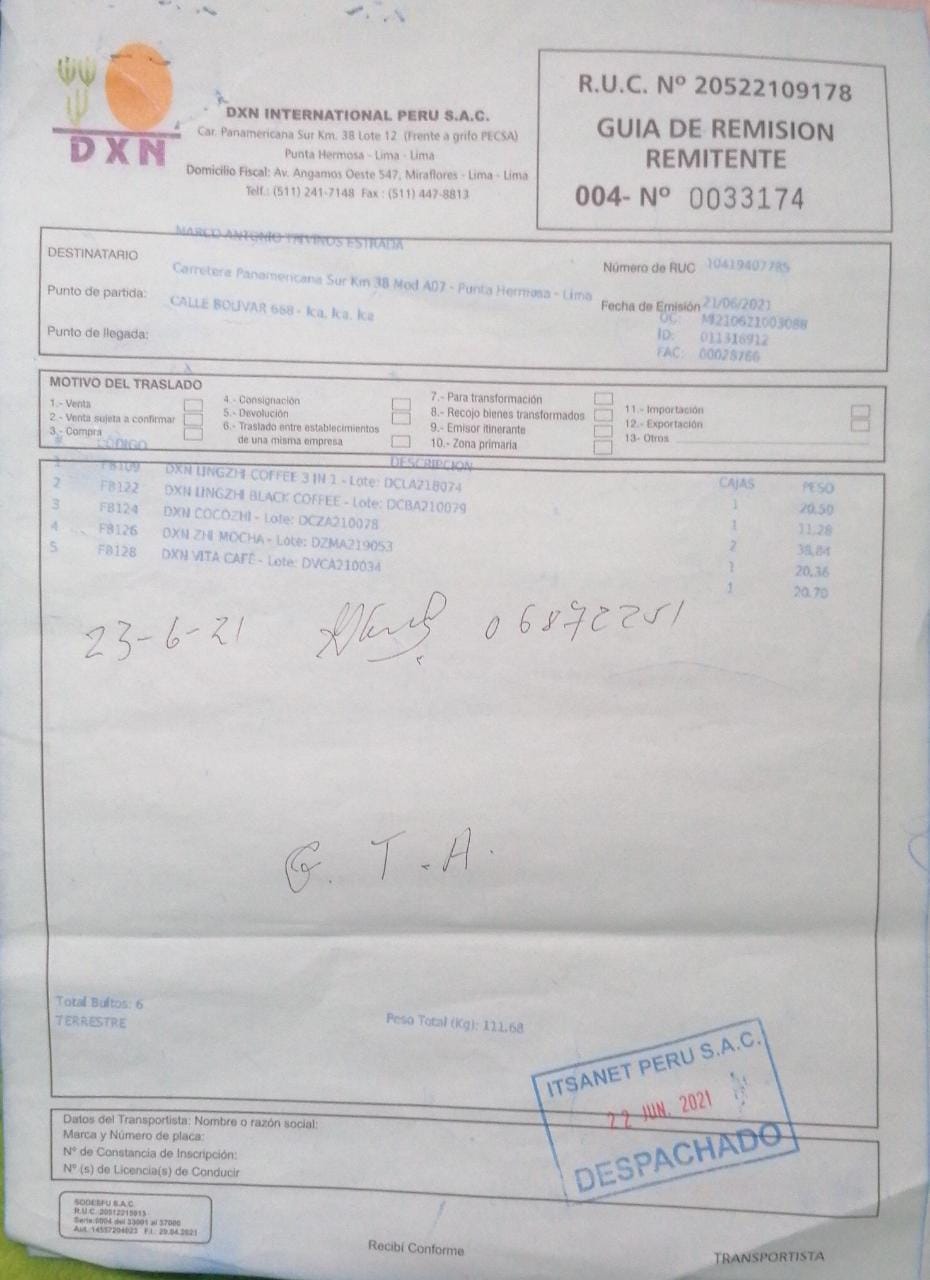 DXN
DXN INTERNATIONAL PERU S.A.C.
Car. Panamericana Sur Km. 38 Lote 12 (Frente a grifo PECSA)
Punta Hermosa - Lima - Lima
Domicilio Fiscal: Av. Angamos Oeste 547, Miraflores - Lima - Lima
Telf.: (511) 241-7148 Fax : (511) 447-8813
R.U.C. Nº 20522109178
GUIA DE REMISION
REMITENTE
004- Nº 0033174
MARCO ANTONIO TRIVIÑOS ESTRADA
DESTINATARIO
Número de RUC 10419407785
Carretera Panamericana Sur Km 38 Mod A07 - Punta Hermosa - Lima
Punto de partida:
Fecha de Emisión 21/06/2021
CALLE BOLIVAR 668 - Ica, Ica, Ica
OC: MI210621003088
Punto de llegada:
ID: 011316912
FAC: 00028766
MOTIVO DEL TRASLADO
X
1.- Venta
2.- Venta sujeta a confirmar
3.- Compra
4.- Consignación
5.- Devolución
6.- Traslado entre establecimientos
de una misma empresa
7.- Para transformación
8.- Recojo bienes transformados
9.- Emisor itinerante
10.- Zona primaria
11.- Importación
12.- Exportación
13- Otros
# CODIGO DESCRIPCION CAJAS PESO
1 FB109 DXN LINGZHI COFFEE 3 IN 1 - Lote: DCLA218074 1 20.50
2 FB122 DXN LINGZHI BLACK COFFEE - Lote: DCBA210079 1 11.28
3 FB124 DXN COCOZHI - Lote: DCZA210078 2 38.84
4 FB126 DXN ZHI MOCHA - Lote: DZMA219053 1 20.36
5 FB128 DXN VITA CAFÉ - Lote: DVCA210034 1 20.70
23-6-21 06872251
G. T. A.
Total Bultos: 6
TERRESTRE
Peso Total (Kg): 111.68
ITSANET PERU S.A.C.
22 JUN. 2021
DESPACHADO
Datos del Transportista: Nombre o razón social:
Marca y Número de placa:
Nº de Constancia de Inscripción:
Nº (s) de Licencia(s) de Conducir
SODESFU S.A.C.
R.U.C. 20512215015
Serie:0004 del 33001 al 37000
Aut.:14557204023 F.I.: 29.04.2021
Recibí Conforme
TRANSPORTISTA